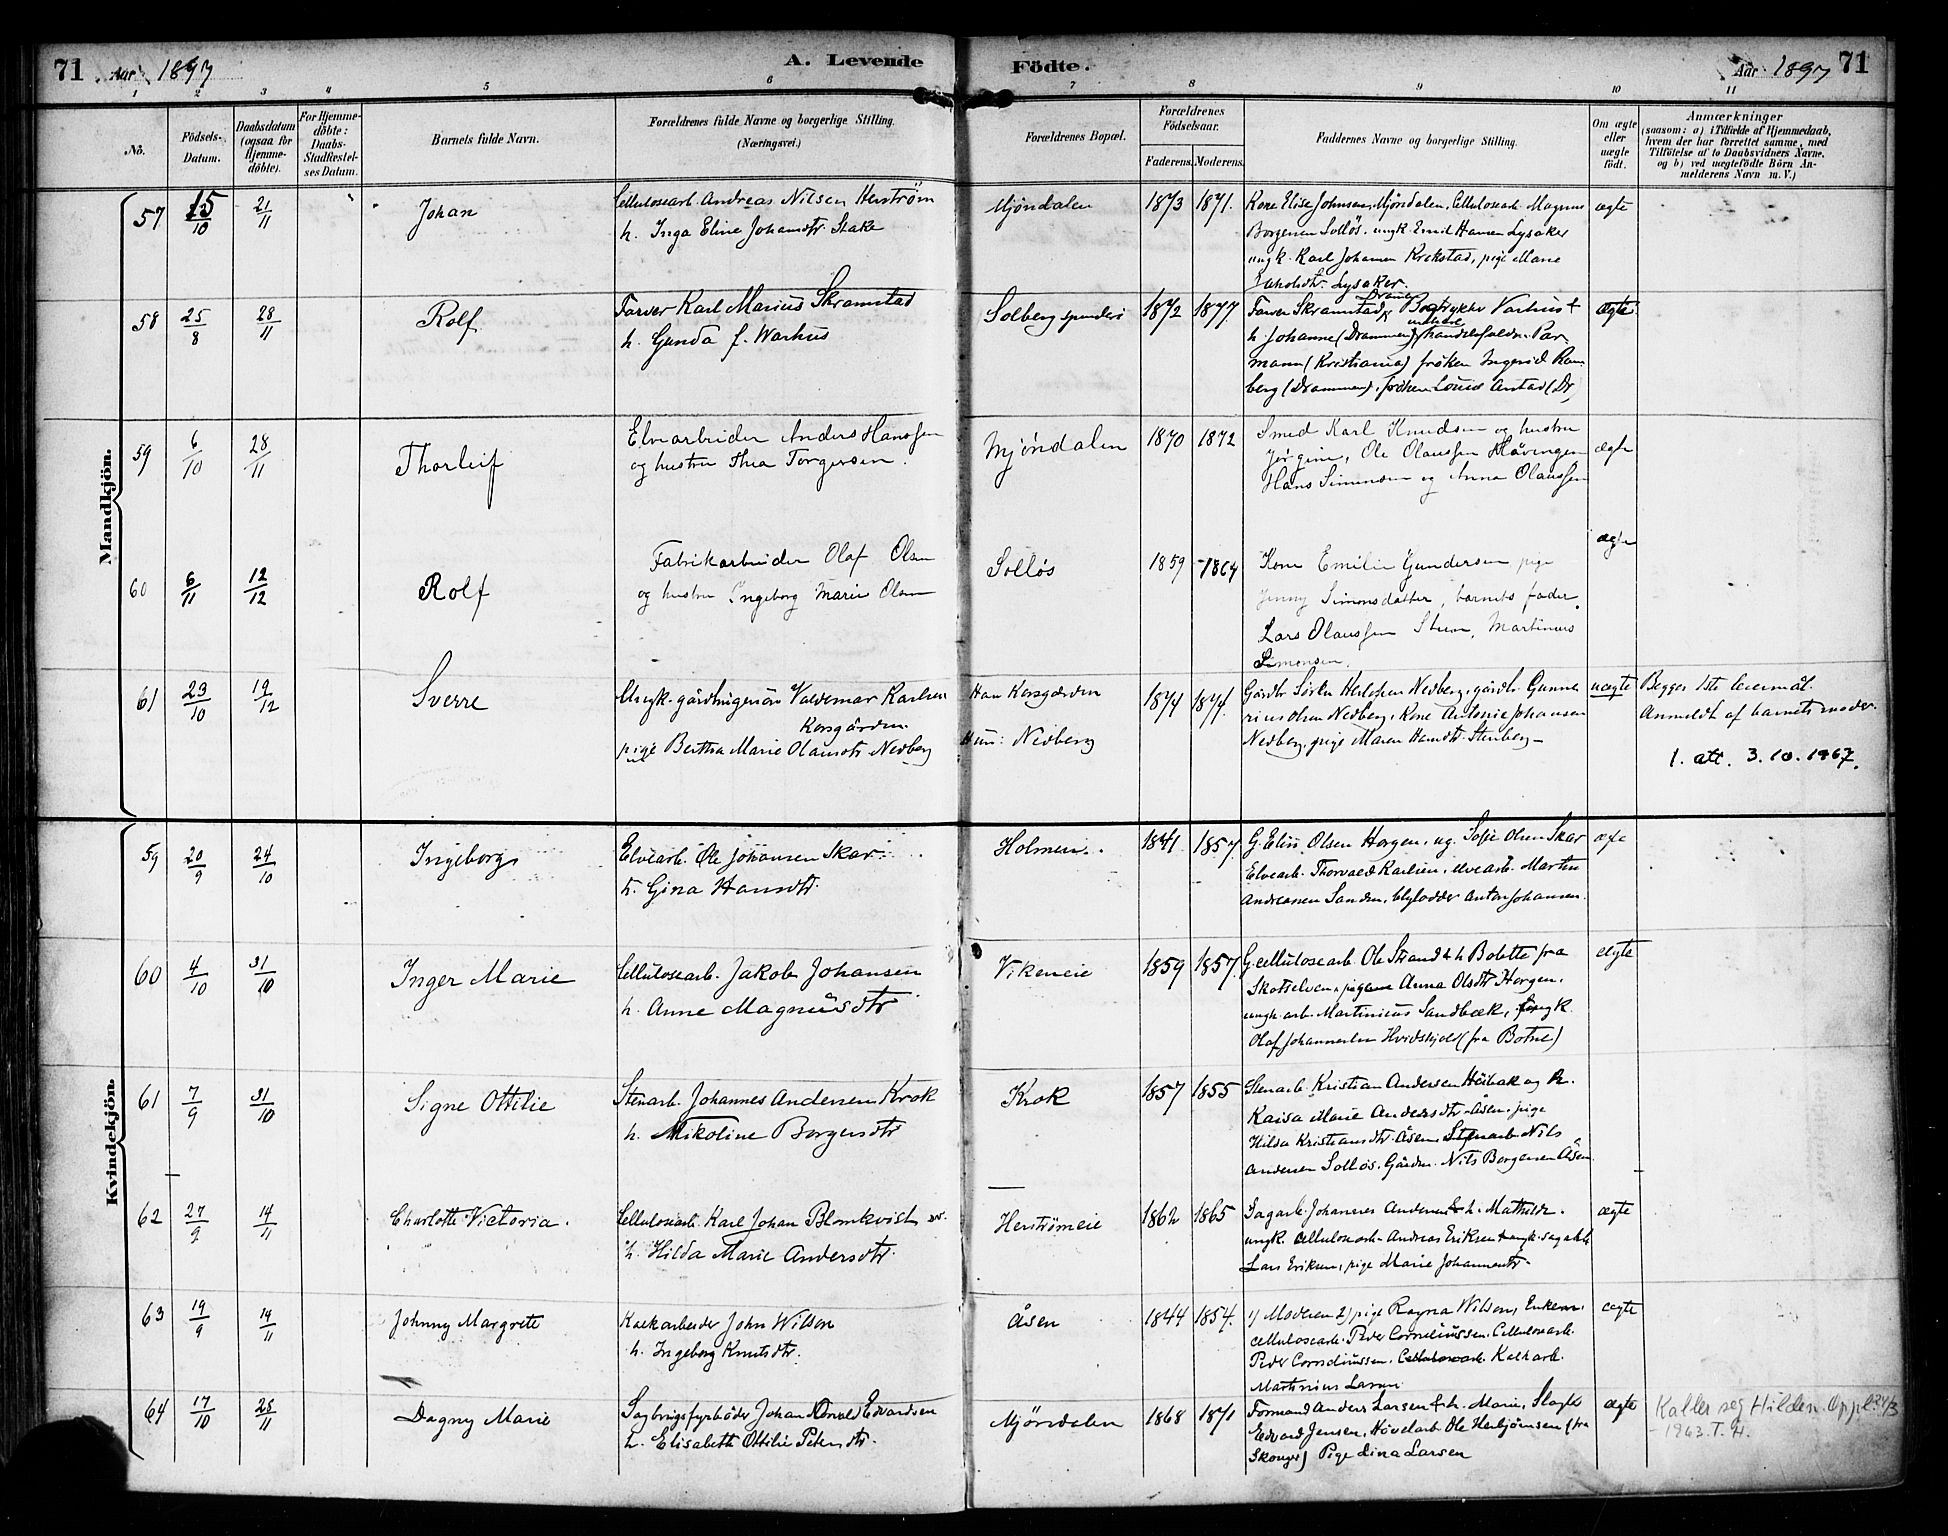 71 Aar 1897 A. Levende Födte. Aar 1897 71
1 2 3 4 5 6 7 8 9 10 11
No. Födsels-Datum. Daabsdatum (ogsaa for Hjemmedöbte). For Hjemmedöbte: Daabs-Stadfæstelses Datum. Barnets fulde Navn. Forældrenes fulde Navne og borgerlige Stilling. (Næringsvei.) Forældrenes Bopæl. Forældrenes Födselsaar. Faderens. Moderens. Faddernes Navne og borgerlige Stilling. Om ægte eller uægte födt. Anmærkninger (saasom: a) i Tilfælde af Hjemmedaab, hvem der har forrettet samme, med Tilföielse af to Daabsvidners Navne, og b) ved uægtefödte Börn Anmelderens Navn m. V.)
Mandkjön.
57 15/10 21/11 Johan Cellulosearb. Andreas Nilsen Herström Mjöndalen 1873 1871. Kone Elise Johnsen, Mjöndalen, Cellulosearb. Magnus ægte
h. Inga Eline Johansdtr. Stake Borgersen Sollös. ungk. Emil Hansen Lysaker
ungk. Karl Johansen Krekstad, pige Marie
Lysaker.
58 25/8 28/11 Rolf Farver Karl Marius Skramstad Solberg spinderi 1872 1877 Farver Skramstad, Bogtrykker Varhus + ægte
h. Gunda f. Warhus h. Johanne (Drammen),
mann (Kristiania) fröken Ingerid Ram
berg (Drammen), fröken Louise Anstad (Dr)
59 6/10 28/11 Thorleif Elvearbeider Anders Hanssen Mjöndalen 1870 1872 Smed Karl Knudsen og hustru ægte
og hustru Thea Torgersen. Jörgine, Ole Olaussen Hävringen
Hans Simensen og Anna Olaussen
60 6/11 12/12 Rolf Fabrikarbeider Olaf Olsen Sollös 1859 1864 Kone Emilie Gundersen pige ægte
og hustru Ingeborg Marie Olsen Jenny Simonsdatter, barnets fader,
Lars Olaussen Steen, Martinius
Simonsen.
61 23/10 19/12 Sverre Ungk. gårdbrugersön Valdemar Karlsen Han Korsgården 1874 1874. Gårdbr. Sören Nedberg, gårdbr. Gunne uægte Begges 1ste leiermål.
Korsgården rius Olsen Nedberg, Kone Antonie Johansen Anmeldt af barnets moder.
pige Bertha Marie Olausdtr Nedberg Hun: Nedberg Nedberg, pige Maren Hansdtr. Stenberg
1. att. 3.10.1967.
Kvindekjön.
59 20/9 24/10 Ingeborg Elvearb. Ole Johansen Skar Holmen. 1841. 1857. G. Elise Olsen Horgen, ug. Sofie Olsen Skar ægte
h. Gina Hansdtr. Elvearb. Thorvald Karlsen, elvearb. Martin
Andreassen Sanden, Anton Johansen.
60 4/10 31/10 Inger Marie Cellulosearb. Jakob Johansen Vikeneie 1859 1857. G. cellulosearb. Ole Strand & h Bolette fra ægte
h. Anne Magnusdtr Skotselven, pige Anna Olsdtr Horgen,
ungk. arb. Martinius Sandbæk, ungk.
Olaf Johannesen Hvidskjold (fra Botne)
61 7/9 31/10 Signe Ottilie Stenarb. Johannes Andersen Krok Krok 1857 1855 Stenarb. Kristian Andersen Höibak og h.
h. Nikoline Borgersdtr Kaisa Marie Andersdtr. Åsen, pige
Hilda Kristiansdtr Åsen, Stenarb. Nils
Andersen Sollös. Gårdm. Nils Borgersen Åsen
62 27/9 14/11 Charlotte Victoria. Cellulosearb. Karl Johan Blomkvist Herströmeie 1862 1865 Sagarb. Johannes Andersen & h. Mathilde. ægte
h. Hilda Marie Andersdtr. ungk. cellulosearb. Andreas Eriksen, ungk. sagarb.
Lars Eriksen, pige Marie Johannesdtr.
63 19/9 14/11 Johnny Margrete Kalkarbeider John Wilson Åsen 1844 1854. 1) Moderen 2) pige Ragna Wilson, Enkem. ægte
h. Ingeborg Knutsdtr. cellulosearb. Peder Corneliussen. Cellulosearb.
Peder Corneliussen, Kalkarb.
Martinius Larsen
64 17/10 28/11 Dagny Marie Sagbrugsfyrböder Johan Edvardsen Mjöndalen 1868 1871 Formand Anders Larsen & h. Marie, Slagter ægte Kaller seg Hilden. Oppl. 24/3
h. Elisabeth Ottilie Petersdtr. Edvard Jensen, Hövelarb. Ole Herbjörnsen (fra 1963. T.H.
Skoger) Pige Lina Larsen